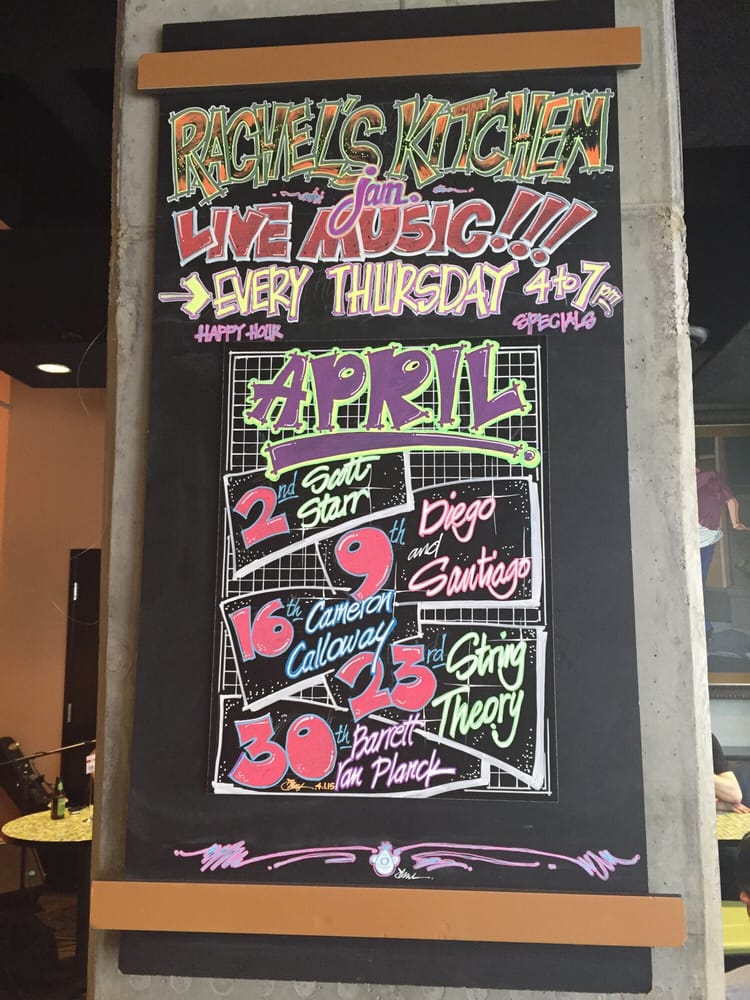 RACHEL'S KITCHEN
jam.
LIVE MUSIC!!!
EVERY THURSDAY 4 to 7 pm
HAPPY HOUR SPECIALS
APRIL
2nd Scott
Starr
9th Diego
and
Santiago
16th Cameron
Calloway
23rd String
Theory
30th Barrett
Van Planck
4.1.15